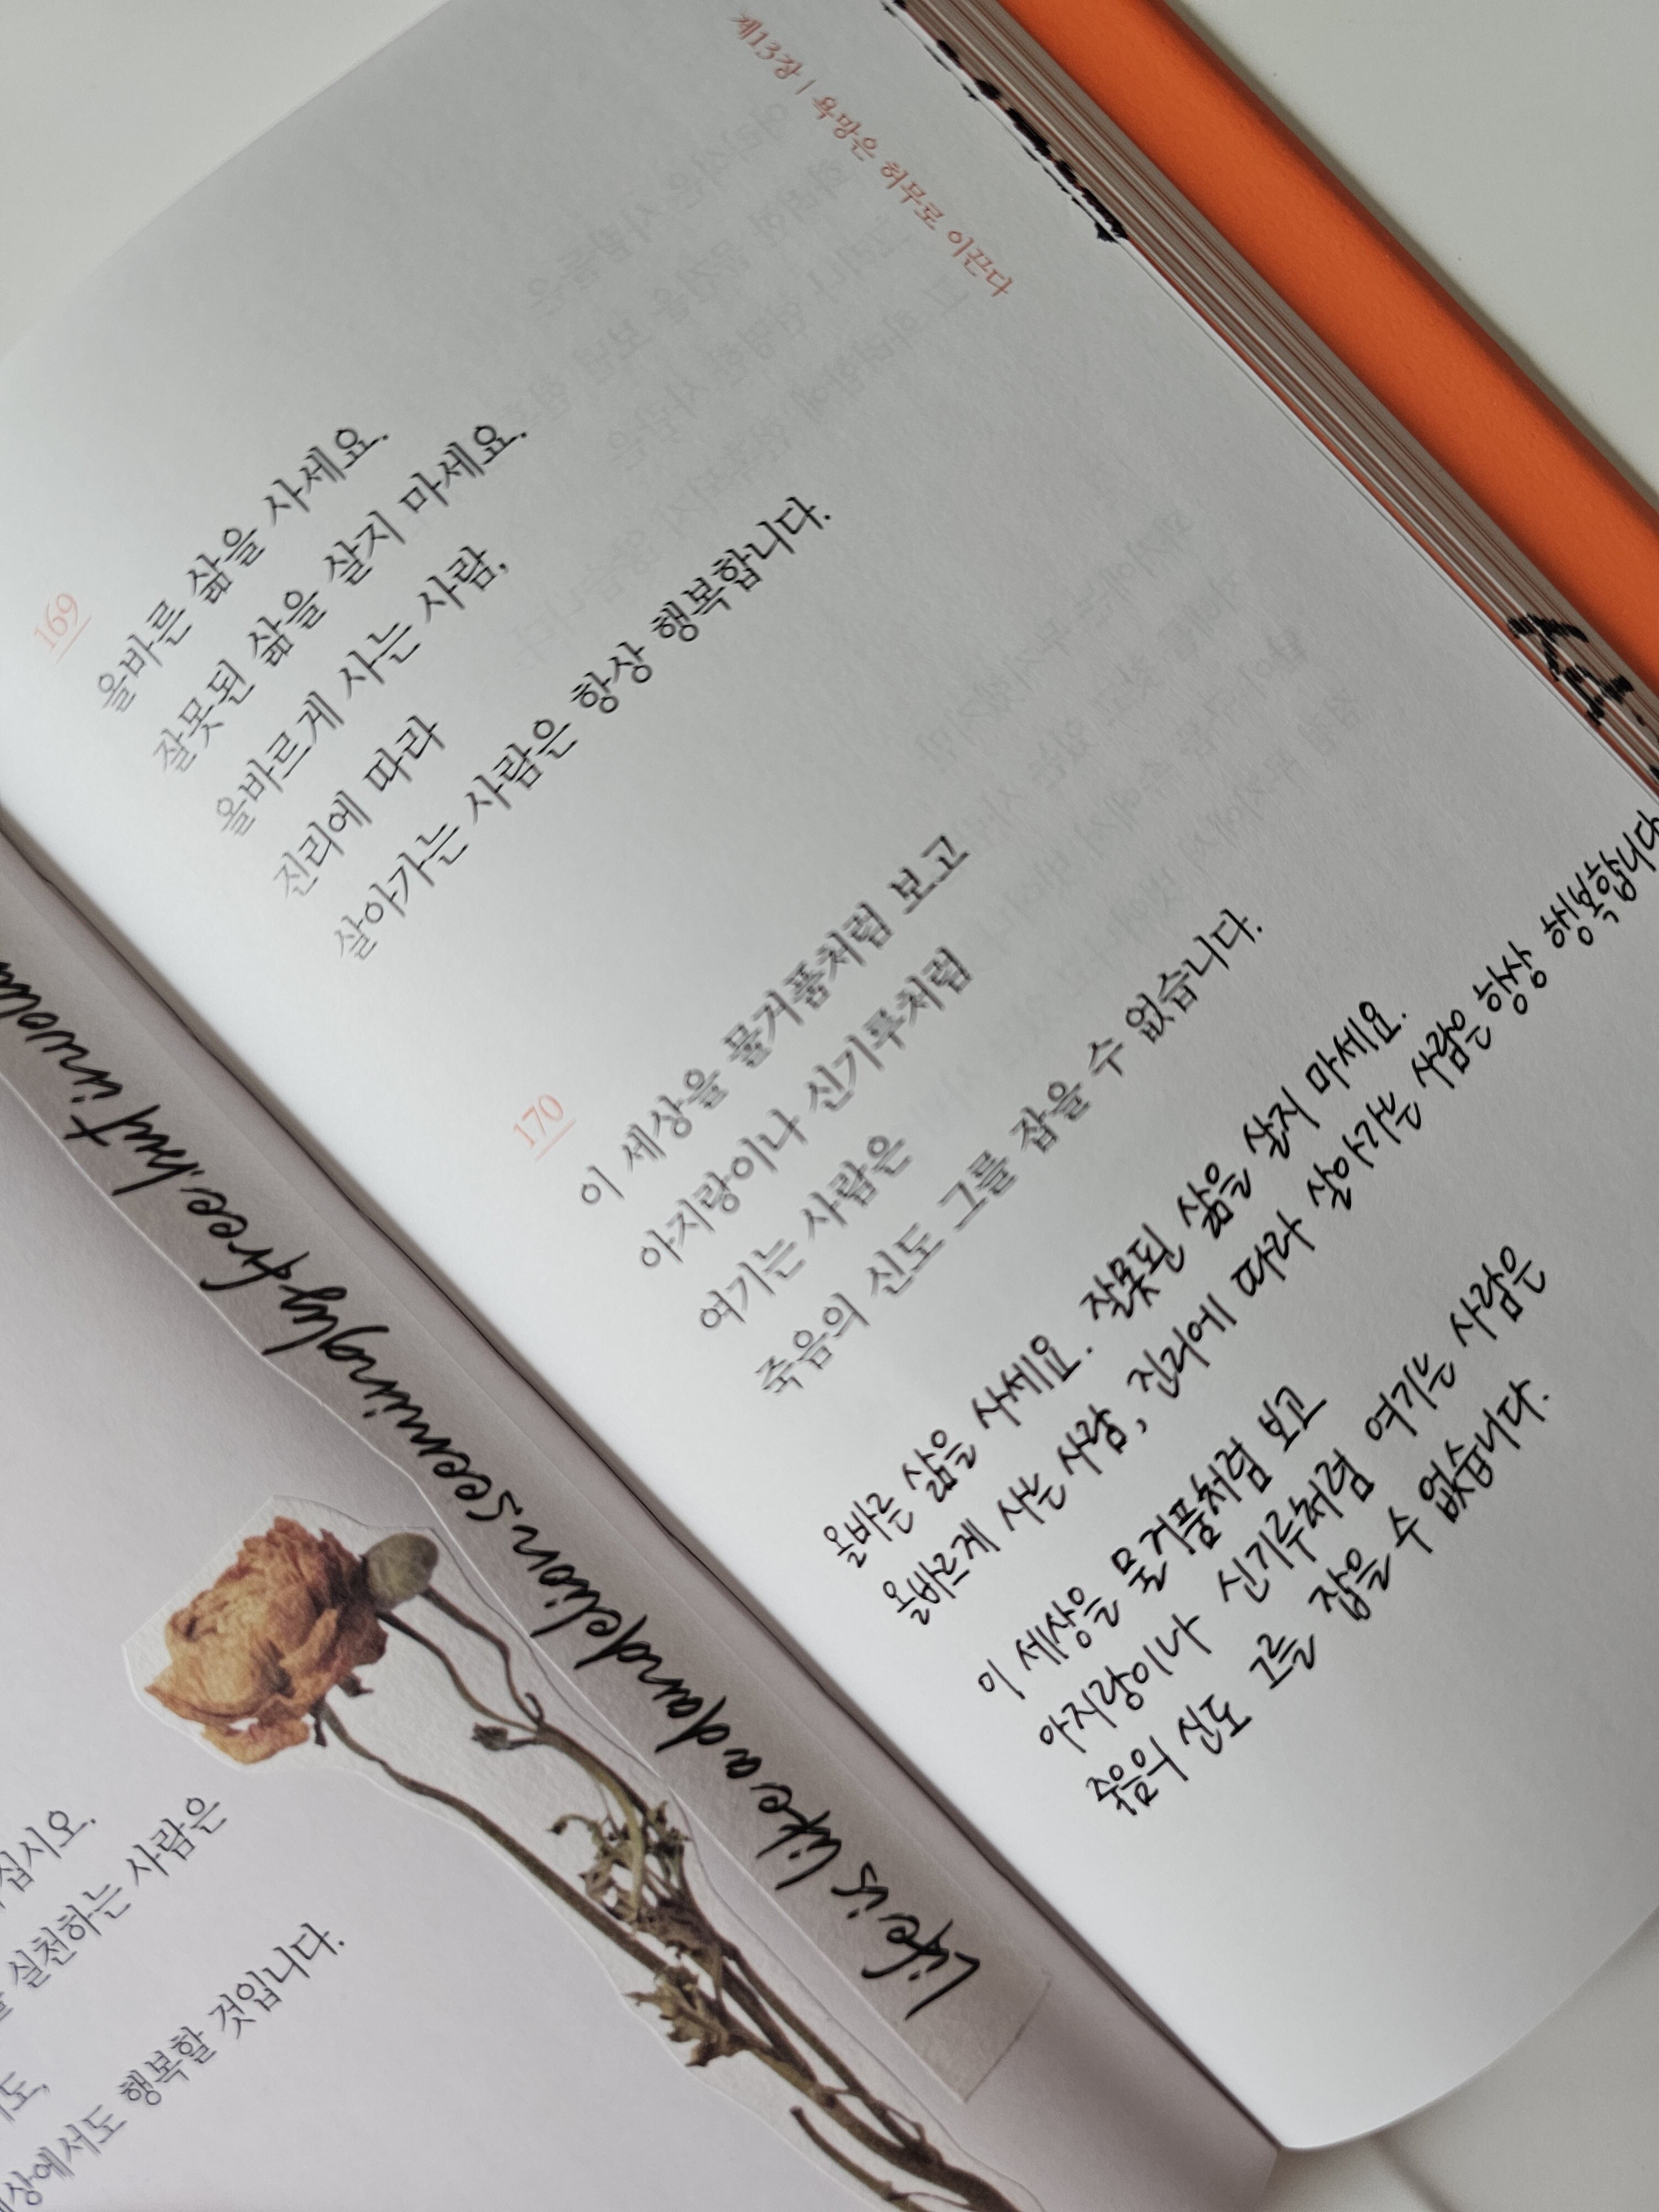 십시오.
실천하는 사람은
도,
상에서도 행복할 것입니다.
Life is like a dandelion. seemingly free. but
제13장 | 욕망은 허무로 이끈다
169
올바른 삶을 사세요.
잘못된 삶을 살지 마세요.
올바르게 사는 사람,
진리에 따라
살아가는 사람은 항상 행복합니다.
170
이 세상을 물거품처럼 보고
아지랑이나 신기루처럼
여기는 사람은
죽음의 신도 그를 잡을 수 없습니다.
올바른 삶을 사세요. 잘못된 삶을 살지 마세요.
올바르게 사는 사람, 진리에 따라 살아가는 사람은 항상 행복합니다
이 세상을 물거품처럼 보고
아지랑이나 신기루처럼 여기는 사람은
죽음의 신도 그를 잡을 수 없습니다.